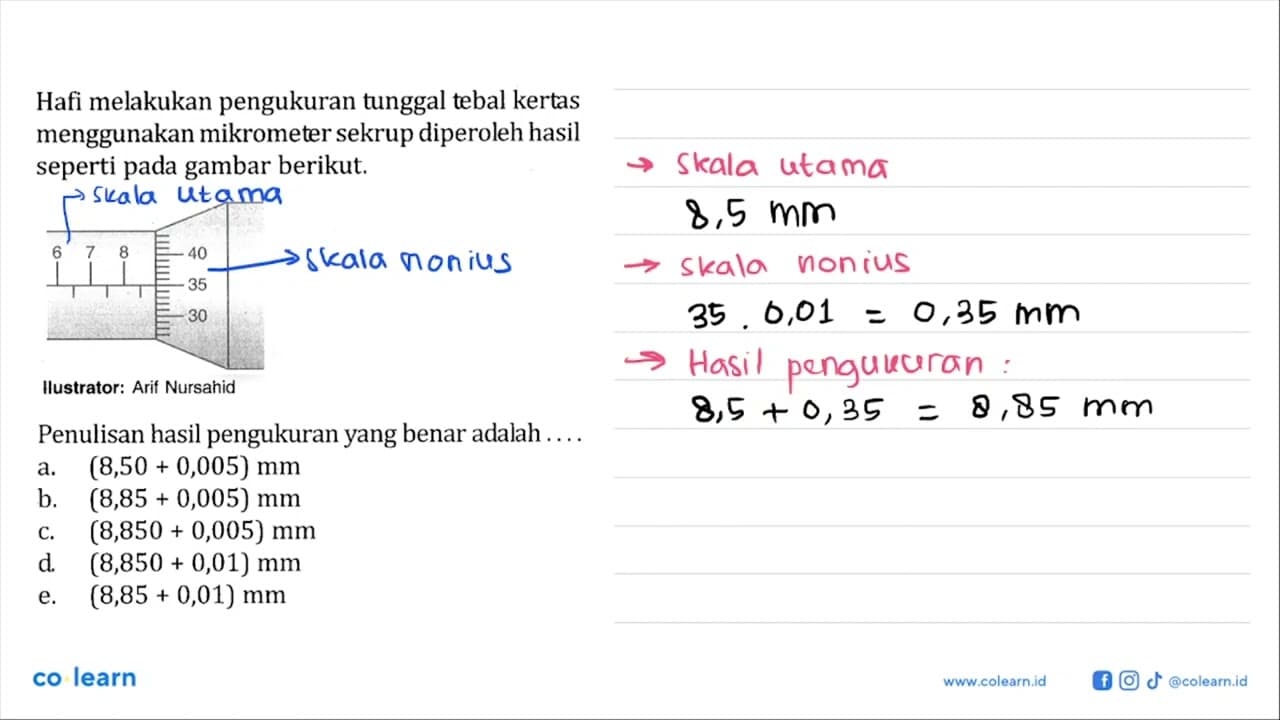 Hafi melakukan pengukuran tunggal tebal kertas
menggunakan mikrometer sekrup diperoleh hasil
seperti pada gambar berikut.
skala utama
6 7 8
40
35
30
skala nonius
Ilustrator: Arif Nursahid
Penulisan hasil pengukuran yang benar adalah ....
a. (8,50 + 0,005) mm
b. (8,85 + 0,005) mm
c. (8,850 + 0,005) mm
d. (8,850 + 0,01) mm
e. (8,85 + 0,01) mm
→ skala utama
8,5 mm
→ skala nonius
35 . 0,01 = 0,35 mm
→ Hasil pengukuran :
8,5 + 0,35 = 8,85 mm
co learn
www.colearn.id
@colearn.id